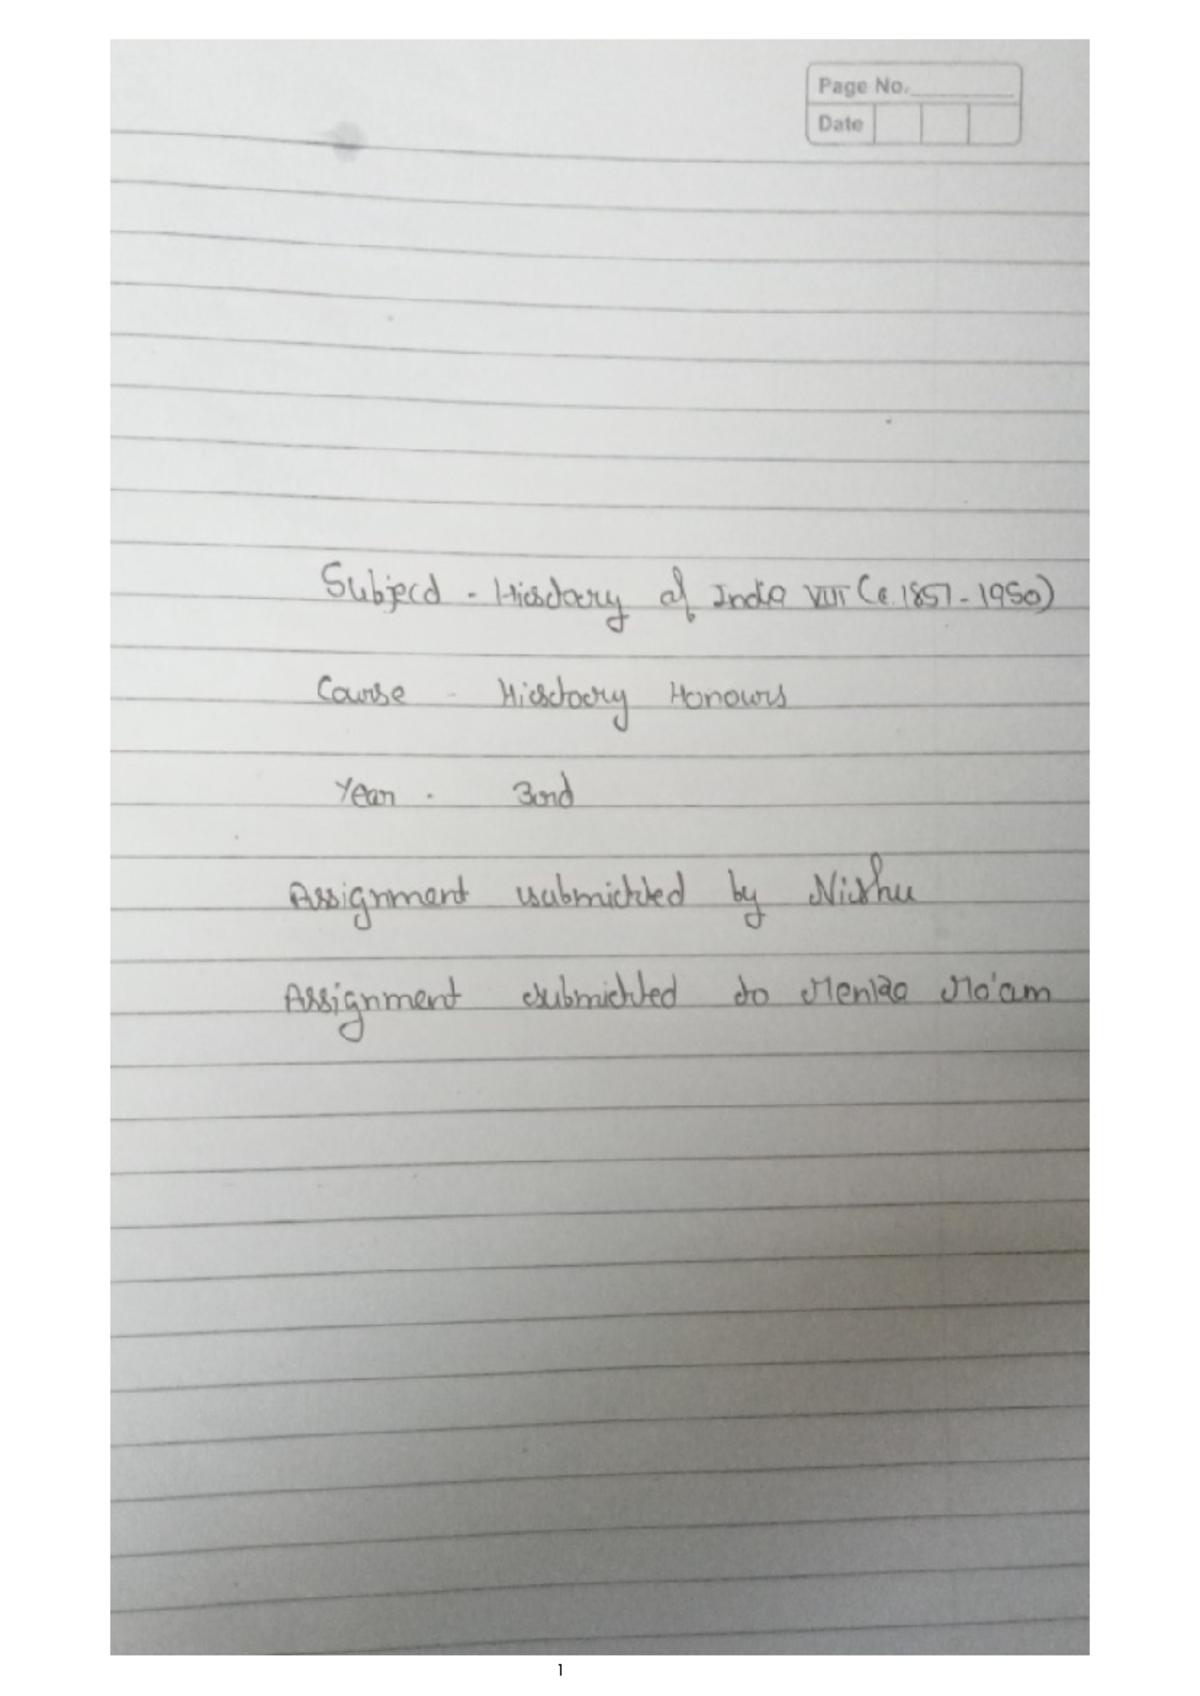 Page No.
Date
Subject - History of India VIII (c. 1857 - 1950)
Course - History Honours
Year - 3rd
Assignment submitted by Nishu
Assignment submitted to Ma'am
1